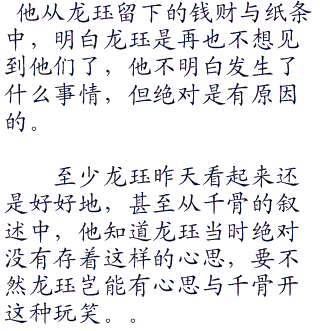 他从龙珏留下的钱财与纸条
中，明白龙珏是再也不想见
到他们了，他不明白发生了
什么事情，但绝对是有原因
的。
至少龙珏昨天看起来还
是好好地，甚至从千骨的叙
述中，他知道龙珏当时绝对
没有存着这样的心思，要不
然龙珏岂能有心思与千骨开
这种玩笑。。